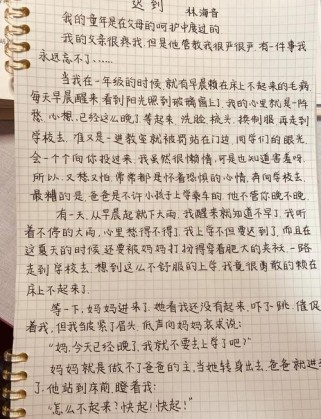 迟到 林海音
我的童年是在父母的呵护中度过的
我的父亲很疼我,但是他管教我很严很严,有一件事我
永远忘不了……
当我在一年级的时候,就有早晨赖在床上不起来的毛病
每天早晨醒来,看到阳光照到玻璃窗上了,我的心里就是一阵
愁,心想,已经这么晚了,等起来,洗脸,梳头,换制服,再走到
学校去,准又是一进教室就被罚站在门边,同学们的眼光,
会一个个向你投过来,我虽然很懒惰,可是也知道害羞呀,
所以又愁又怕,常常都是怀着恐惧的心情,奔向学校去,
最糟的是,爸爸是不许小孩子上学乘车的,他不管你晚不晚
有一天,从早晨起就下大雨,我醒来就知道不早了,我听
着不停的大雨,心里愁得不得了,我上学不但要迟到了,而且在
这夏天的时候,还要被妈妈打扮得穿着肥大的夹袄,一路
走到学校去,想到这么不舒服的上学,我竟很勇敢的赖在
床上不起来了,
等一下,妈妈进来了,她看我还没有起来,吓了一跳,催促
着我,但我皱紧了眉头,低声向妈妈哀求说:
“妈,今天已经晚了,我就不要去上学了吧?”
妈妈就是做不了爸爸的主,当她转身出去,爸爸就进来
了,他站到床前,瞪着我:
“怎么不起来?快起!快起!”